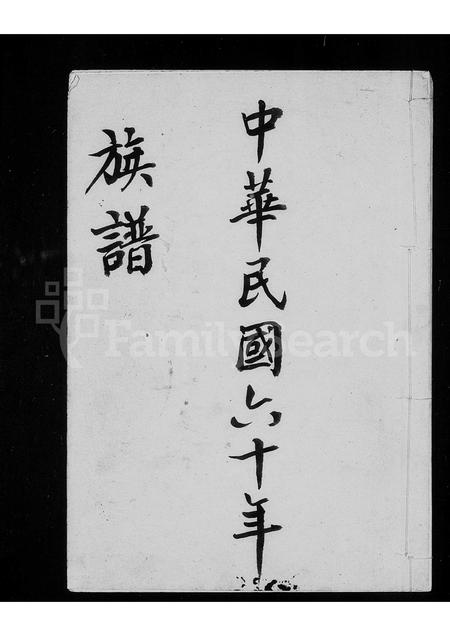 中華民國六十年
族譜
FamilySearch